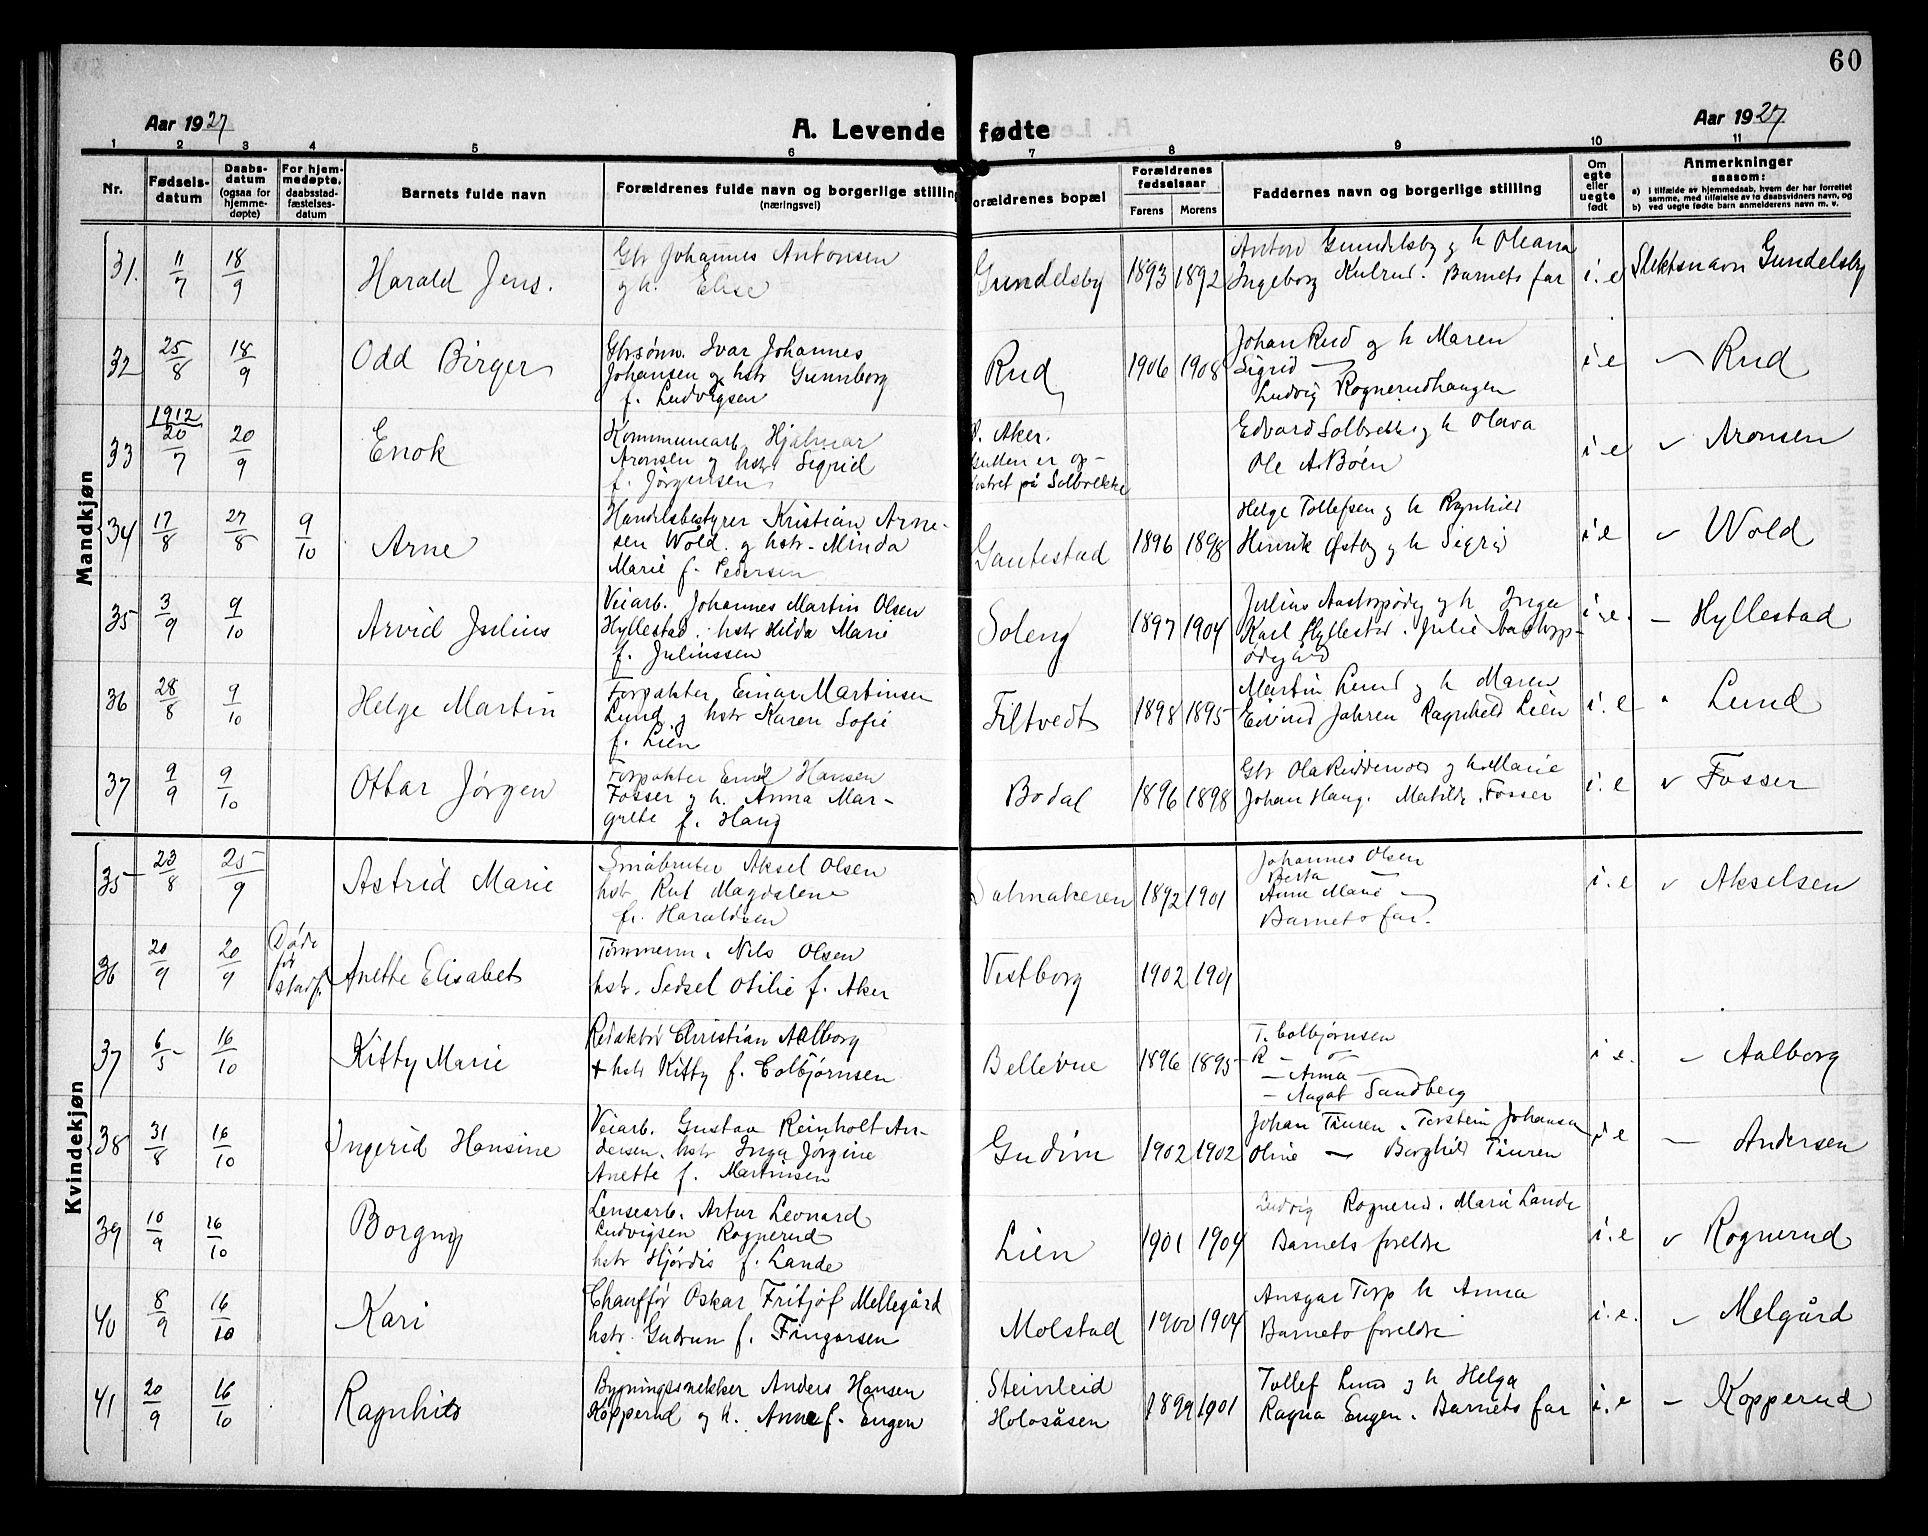 60
Aar 1927
A. Levende fødte
Aar 1927
1 2 3 4 5 6 7 8 9 10 11
Nr.
Fødsels-
datum
Daabs-
datum
(ogsaa for
hjemme-
døpte)
For hjem-
medøpte,
daabsstad-
fæstelses-
datum
Barnets fulde navn
Forældrenes fulde navn og borgerlige stilling
(næringsvei)
Forældrenes bopæl
Forældrenes
fødselsaar
Farens Morens
Faddernes navn og borgerlige stilling
Om
egte
eller
uegte
født
Anmerkninger
saasom:
a) i tilfælde av hjemmedaab, hvem der har forrettet
samme, med tilføielse av to daabsvidners navn, og
b) ved uegte fødte barn anmelderens navn m. v.
Mandkjøn
31. 11/7 18/9
Harald Jens.
Gbr Johannes Antonsen
g h. Elise
Gundelsby 1893 1892
Anton Gundelsby g h Oleana
Ingeborg Kulrud. Barnets far
i. e Slektsnavn Gundelsby
32 25/8 18/9
Odd Birger
Gbrsønn. Ivar Johannes
Johansen og hstr Gunnborg
f. Ludvigsen
Rud 1906 1908
Johan Rud og h Maren
Sigrid —
Ludvig Rognerudhaugen
i e Rud
33 1912 20/7 20/9
Enok
Kommunearb. Hjalmar
Aronsen og hstr Sigrid
f. Jörgensen
V. Aker.
Gutten er op-
fostret på Solbrekke
Edvard Solbrekke g h Olava
Ole A. Bøen
i e Aronsen
34 17/8 27/8 9/10
Arne
Handelsbestyrer Kristian Arne-
sen Wold. g hstr. Minda
Marie f. Pedersen
Gautestad 1896 1898
Helge Tollefsen g h Ragnhild
Henrik Østby g h Sigrid
i e Wold
35 3/9 9/10
Arvid Julius
Veiarb. Johannes Martin Olsen
Hyllestad. hstr Hilda Marie
f. Juliussen
Soleng 1897 1904
Julius Aastorpødeg g h Inga
Karl Hyllestad. Julie Aastorp-
ødegård
i. e. — Hyllestad
36 28/8 9/10
Helge Martin
Forpakter Einar Martinsen
Lund g hstr Karen Sofie
f. Lien
Filtvedt 1898 1895
Martin Lund g h Maren
Eivind Jahren Ragnhild Lien
i. e Lund
37 9/9 9/10
Ottar Jørgen
Forpakter Emil Hansen
Fosser g h. Anna Mar-
grete f. Haug
Bodal 1896 1898
Gbr Ola g h Marie
Johan Haug. Matilde Fosser
i. e Fosser
Kvindekjøn
35 23/8 25/9
Astrid Marie
Småbruker Aksel Olsen
hstr Rut Magdalene
f. Haraldsen
Dalmakeren 1892 1901
Johannes Olsen
Berta —
Anne Marie —
Barnets far.
i. e Akselsen
36 20/9 20/9 Døde
før
stadf.
Anette Elisabet
Tømmerm. Nils Olsen
hstr. Sedsel Otilie f. Aker
Vestborg 1902 1901
37 6/5 16/10
Kitty Marie
Redaktør Christian Aalborg
+ hstr Kitty f. Colbjørnsen
Bellevue 1896 1895
T. Colbjørnsen
R — o —
— Anna —
— Aagot Sandberg
i e. Aalborg
38 31/8 16/10
Ingerid Hansine
Veiarb. Gustav Reinholt An-
dersen. hstr Inga Jörgine
Anette f. Martinsen
Gudim 1902 1902
Johan Tiuren. Torstein Johansen
Oline — Borghild Tiuren
i e — Andersen
39 10/9 16/10
Borgny
Lensearb. Artur Leonard
Ludvigsen Rognerud
hstr Hjördis f. Lande
Lien 1901 1904
Ludvig Rognerud. Marie Lande
Barnets foreldre
i. e Rognerud
40 8/9 16/10
Kari
Chauffør Oskar Fritjof Mellegård
hstr. Gudrun f. Fingarsen
Molstad 1900 1904
Ansgar Torp h Anna
Barnets foreldre
i. e. Melgård
41 20/9 16/10
Ragnhild
Bygningssnekker Anders Hansen
Kopperud og h. Anna f. Engen
Steinleid
Holosåsen 1899 1901
Tollef Lund g h Helga
Ragna Engen. Barnets far
i. e — Kopperud